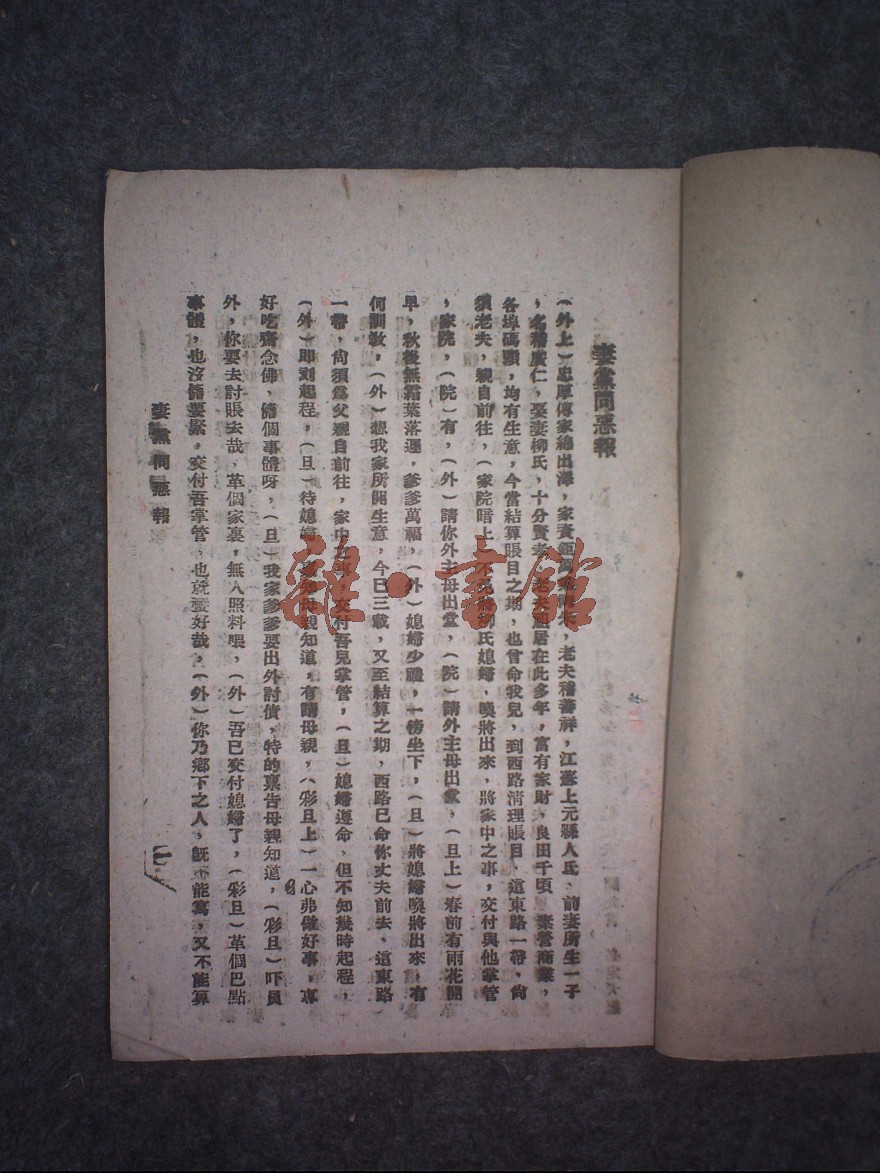 妻黨同惡報
(外上)忠厚傳家 出 ,家資鉅萬 ,老夫稽善祥,江蘇上元縣人氏、前妻所生一子
,名稽廣仁,娶妻柳氏,十分賢孝,老夫 居在此多年,富有家財,良田千頃、素營商業,
各埠碼頭,均有生意,今當結算賬目之期,也曾命我兒,到西路清理賬目、這東路一帶,尙
須老夫,親自前往,(家院暗上)不免 柳氏媳婦,喚將出來,將家中之事,交付與他掌管
,家院,(院)有,(外)請你外主母出堂,(院)請外主母出堂,(旦上)春前有雨花開
早,秋後無霜葉落遲,爹爹萬福,(外)媳婦少禮,一傍坐下,(旦)將媳婦喚將出來,有
何訓教,(外)想我家所開生意,今已三載,又至結算之期,西路已命你丈夫前去,這東路
一帶,尙須爲父親自前往,家中之事,交付吾兒掌管,(旦)媳婦遵命、但不知幾時起程,
(外)即刻起程,(旦)待媳婦 母親知道,有請母親,(彩旦上)一心弗做好事,專
好吃齋念佛,倷個事體呀,(旦)我家爹爹要出外討債,特的稟告母親知道,(彩旦)吓員
外,你要去討賬去哉、革個家裏,無人照料喂,(外)吾已交付媳婦了,(彩旦)革個巴點
事體,也沒倷要緊,交付吾掌管,也就蠻好哉,(外)你乃鄉下之人,旣不能寫,又不能算
妻黨同惡報
一
雜·書館